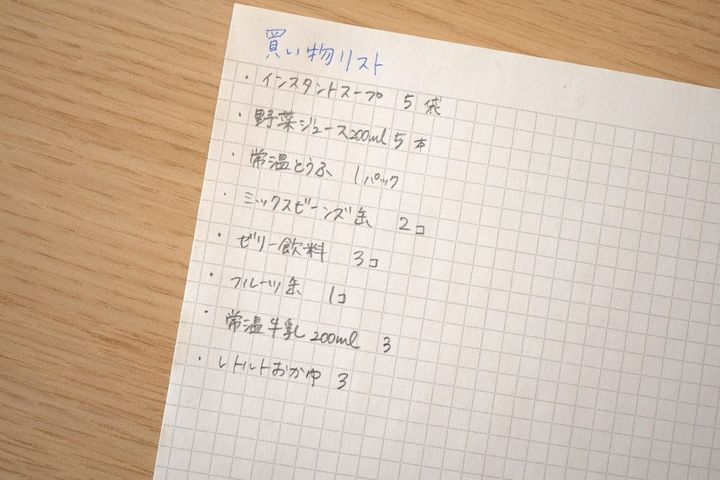 買い物リスト
・インスタントスープ 5袋
・野菜ジュース200ml 5本
・常温とうふ 1パック
・ミックスビーンズ缶 2コ
・ゼリー飲料 3コ
・フルーツ缶 1コ
・常温牛乳200ml 3
・レトルトおかゆ 3